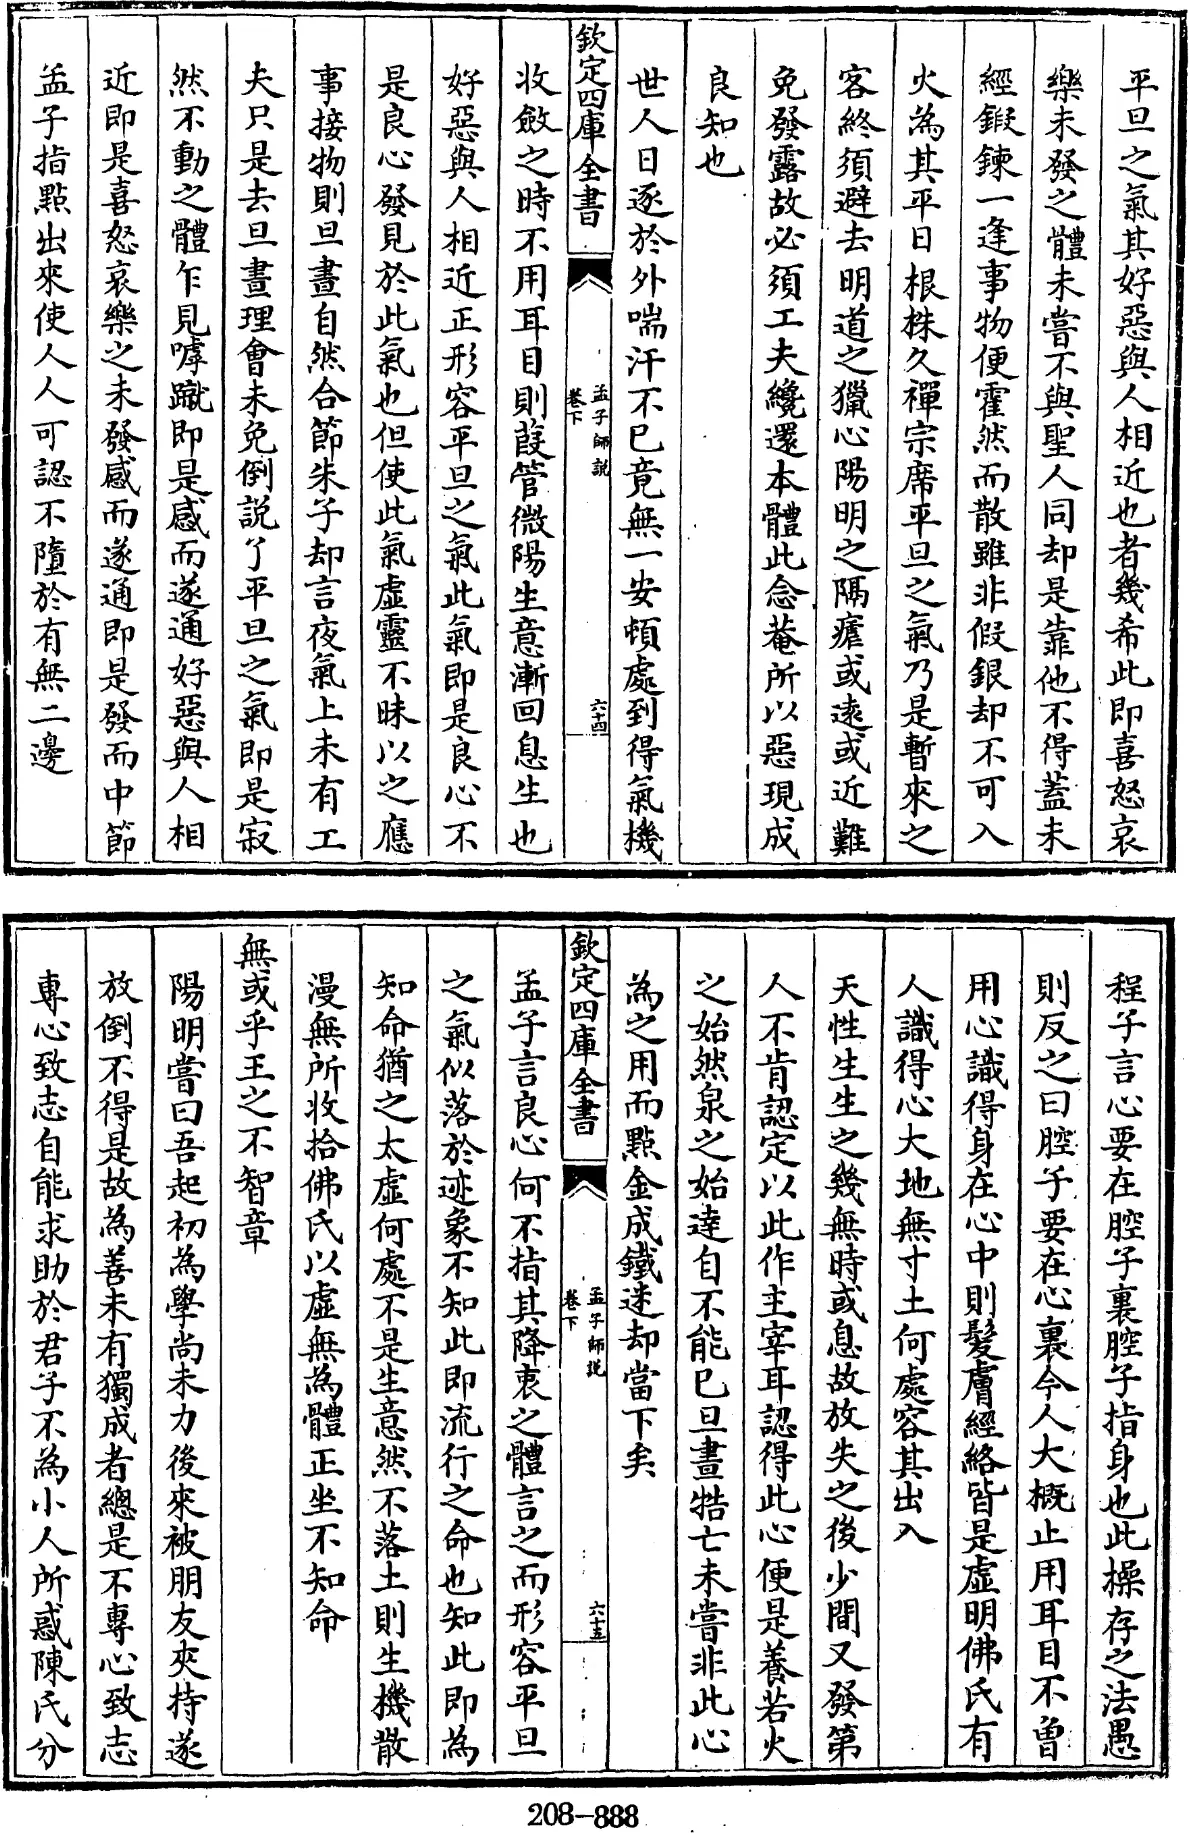 平旦之氣其好惡與人相近也者幾希此即喜怒哀
樂未發之體未嘗不與聖人同却是靠他不得蓋未
經鍛鍊一逢事物便霍然而散雖非假銀却不可入
火為其平日根株久禪宗席平旦之氣乃是暫來之
客終須避去明道之獵心陽明之隔瘧或遠或近難
免發露故必須工夫纔還本體此念菴所以惡現成
良知也
世人日逐於外喘汗不已竟無一安頓處到得氣機
欽定四庫全書
孟子師說
卷下
六十四
收斂之時不用耳目則葭管微陽生意漸回息生也
好惡與人相近正形容平旦之氣此氣即是良心不
是良心發見於此氣也但使此氣虛靈不昧以之應
事接物則旦晝自然合節朱子却言夜氣上未有工
夫只是去旦晝理會未免倒説了平旦之氣即是寂
然不動之體乍見嘑蹴即是感而遂通好惡與人相
近即是喜怒哀樂之未發感而遂通即是發而中節
孟子指點出來使人人可認不墮於有無二邊
程子言心要在腔子裏腔子指身也此操存之法愚
則反之曰腔子要在心裏今人大概止用耳目不曽
用心識得身在心中則髮膚經絡皆是虛明佛氏有
人識得心大地無寸土何處容其出入
天性生生之幾無時或息故放失之後少間又發第
人不肯認定以此作主宰耳認得此心便是養若火
之始然泉之始達自不能已旦晝牿亡未嘗非此心
為之用而點金成鐵迷却當下矣
欽定四庫全書
孟子師說
卷下
六十五
孟子言良心何不指其降衷之體言之而形容平旦
之氣似落於迹象不知此即流行之命也知此即為
知命猶之太虛何處不是生意然不落土則生機散
漫無所收拾佛氏以虛無為體正坐不知命
無或乎王之不智章
陽明嘗曰吾起初為學尚未力後來被朋友夾持遂
放倒不得是故為善未有獨成者總是不專心致志
專心致志自能求助於君子不為小人所惑陳氏分
208-888